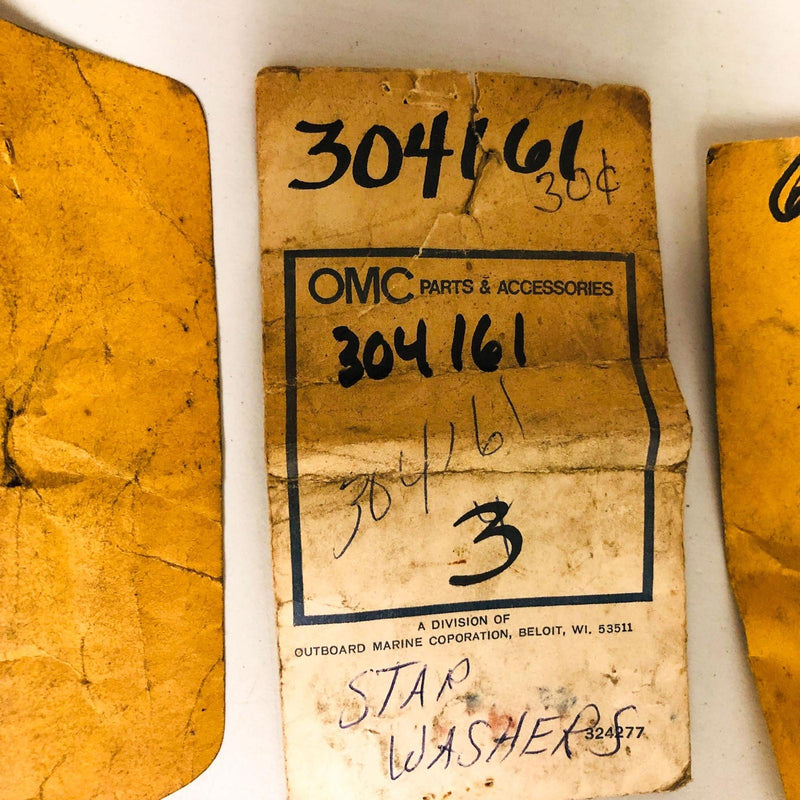 304161
30¢
OMC PARTS & ACCESSORIES
304161
304161
3
A DIVISION OF
OUTBOARD MARINE COPORATION, BELOIT, WI. 53511
STAR
WASHERS
324277
6